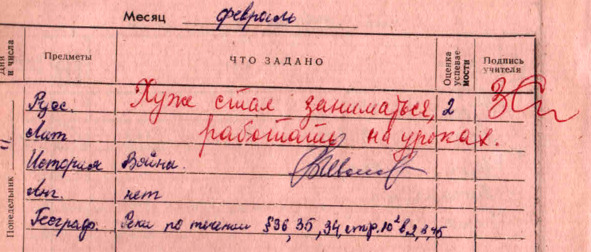 Месяц февраль
Дни и числа
Предметы
ЧТО ЗАДАНО
Оценка успевае-мости
Подпись учителя
Понедельник
Русс. Хуже стал заниматься, 2
Лит. работать на уроках.
История Войны.
Анг. нет
Географ. Реки по течении §36, 35, 34, стр.